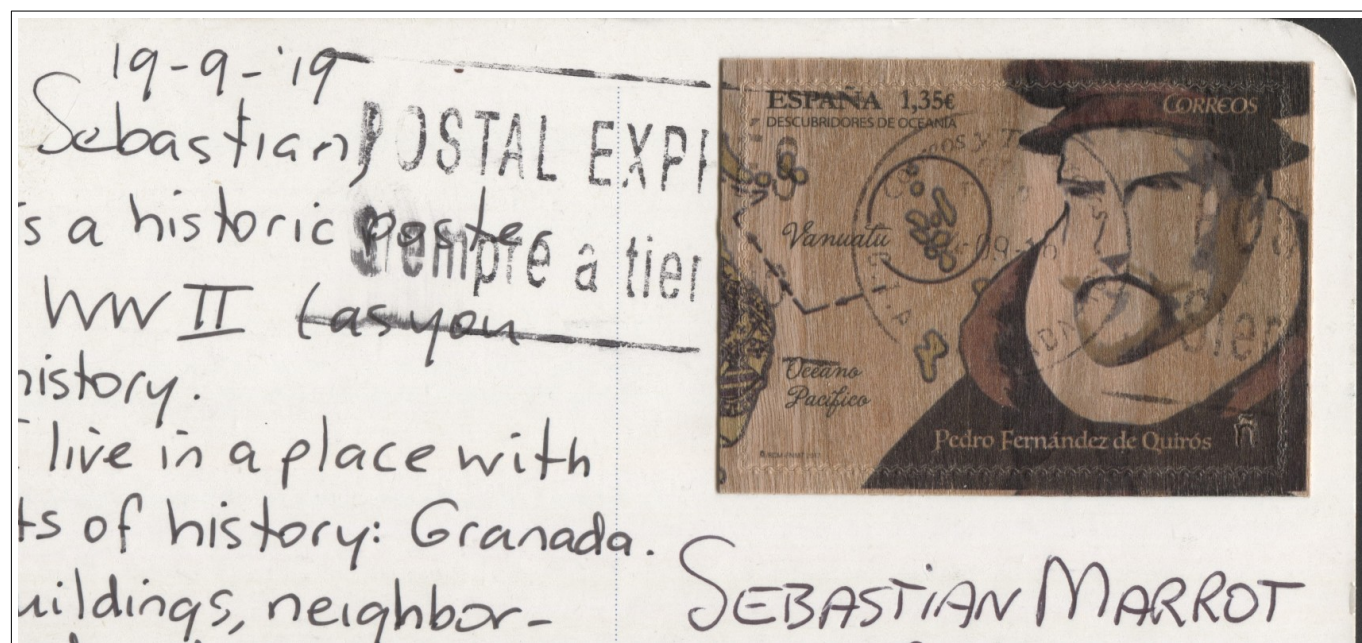 19-9-'19
Sebastian,
s a historic poster
WW II (as you
history.
I live in a place with
ts of history: Granada.
uildings, neighbor-
POSTAL EXPR
Siempre a tier
ESPAÑA 1,35€
CORREOS
DESCUBRIDORES DE OCEANÍA
Vanuatu
Océano
Pacífico
Pedro Fernández de Quirós
SEBASTIAN MARROT